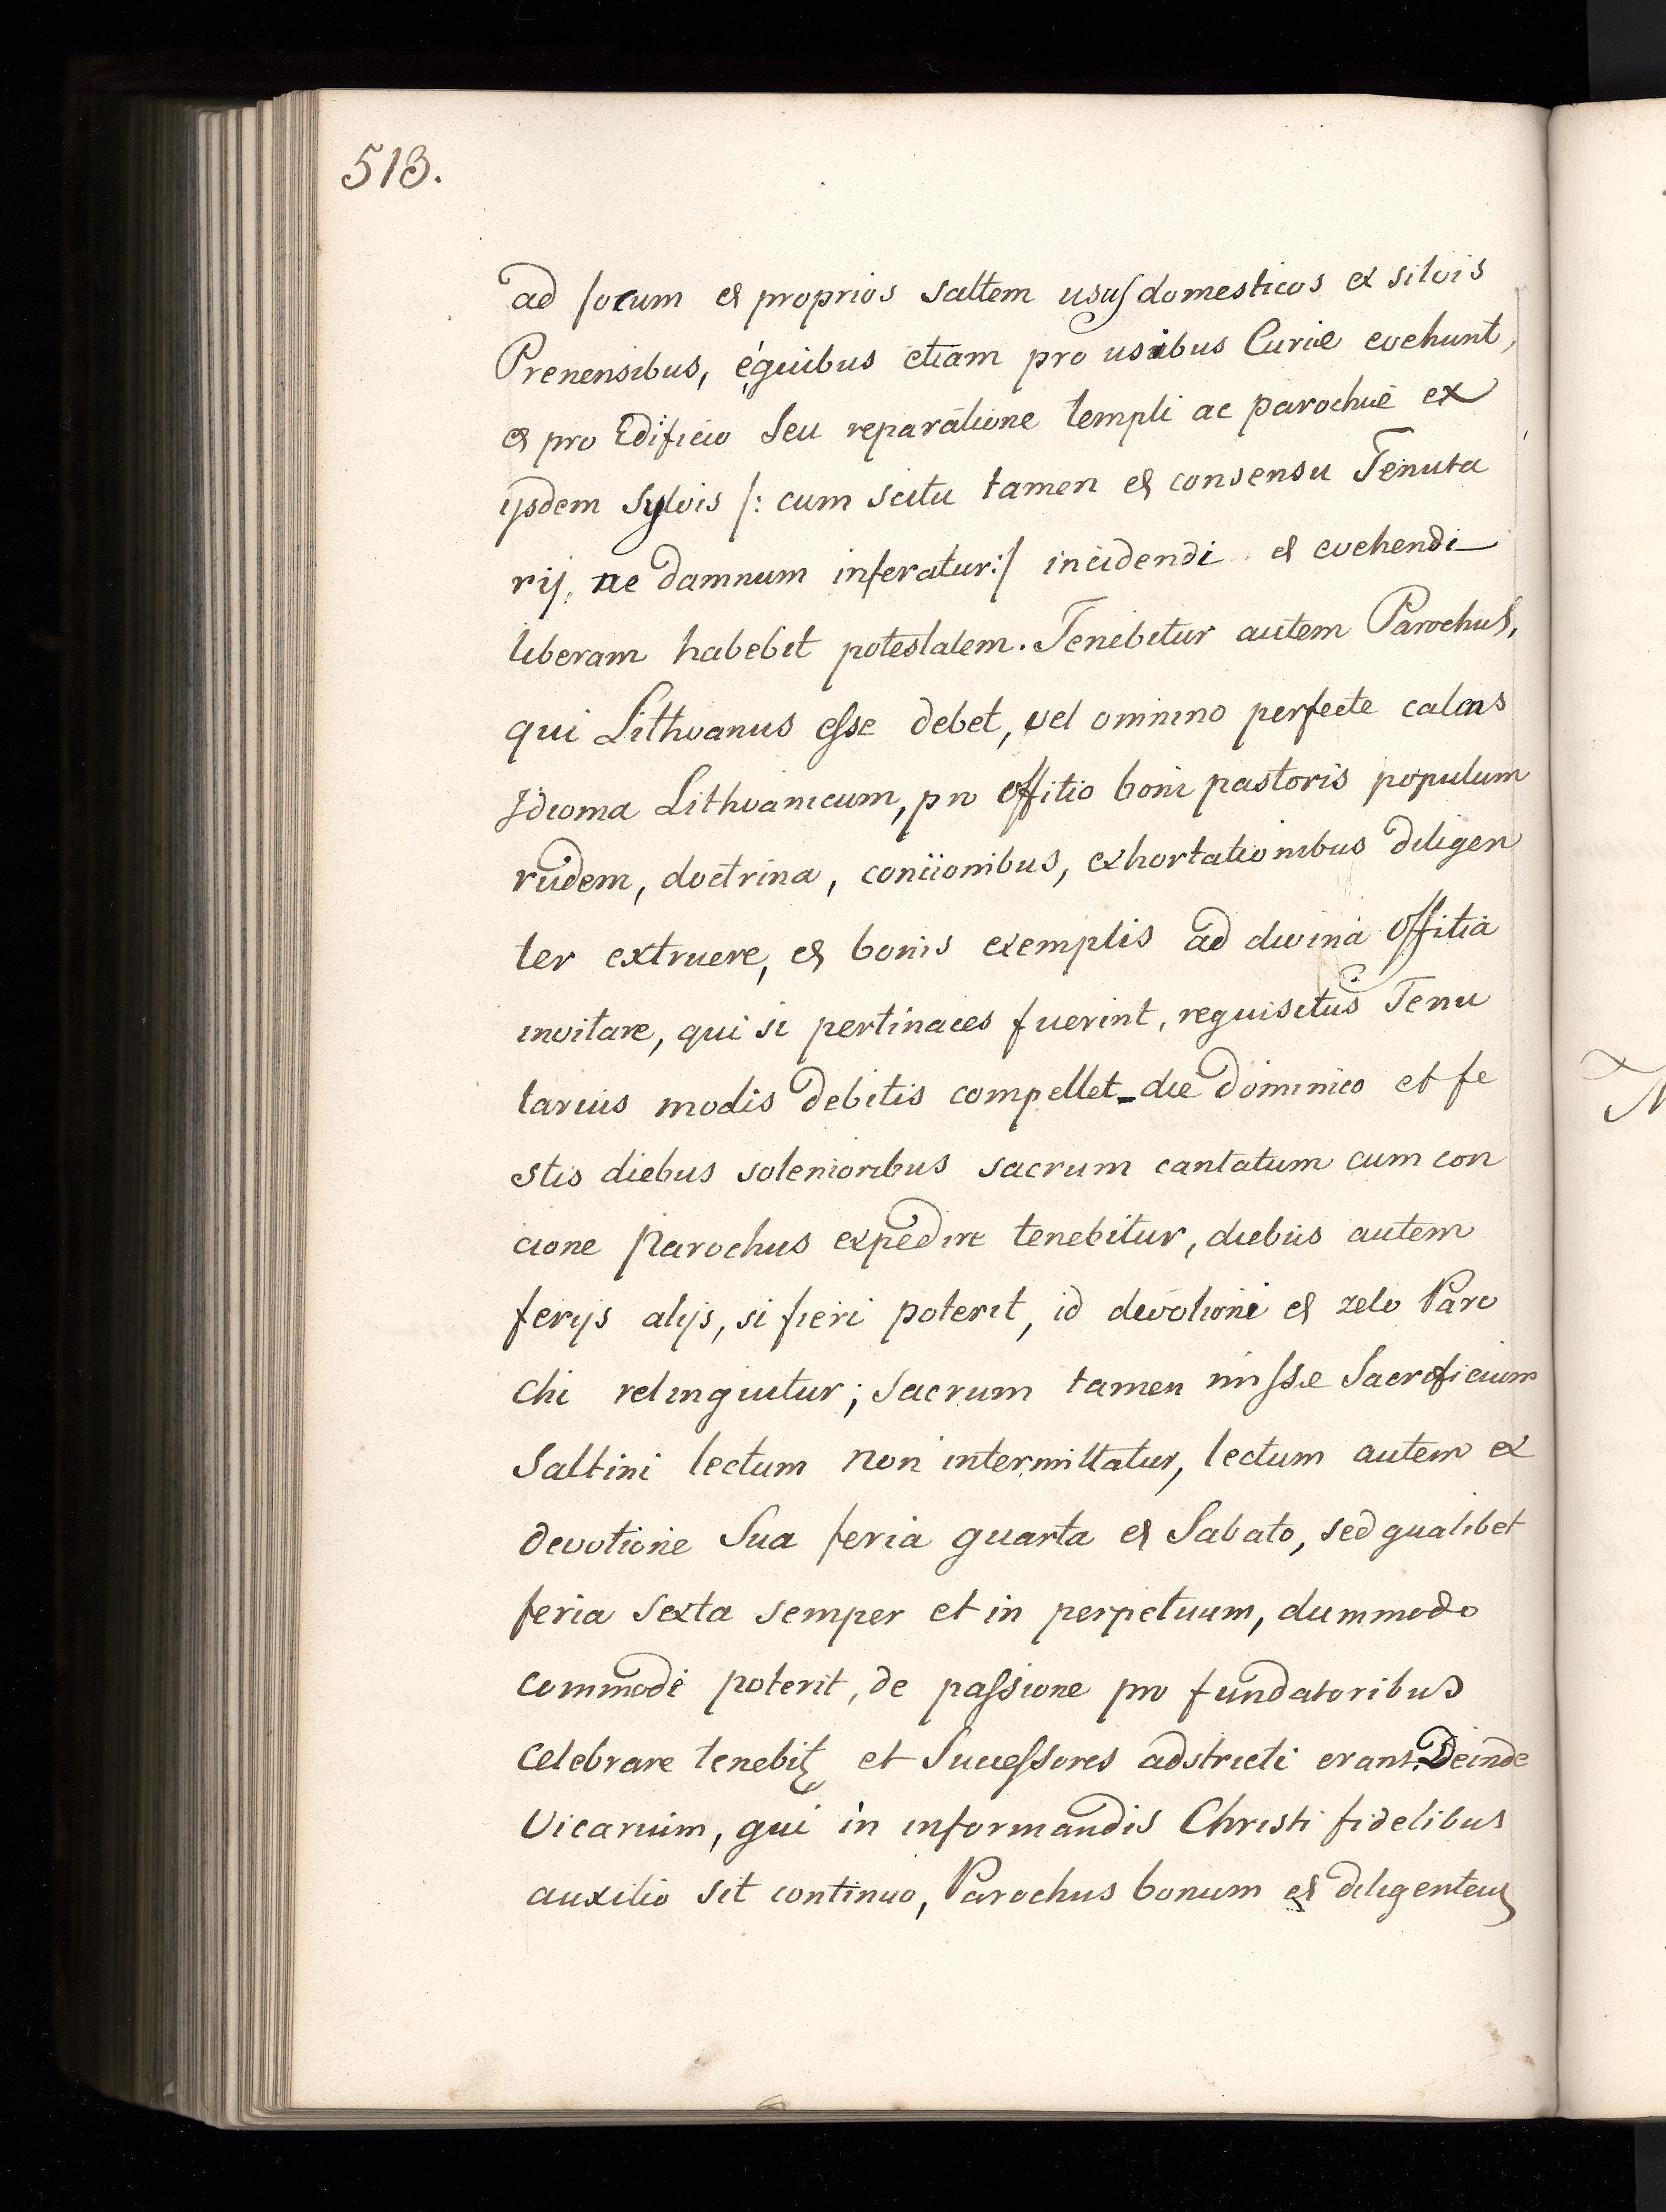 513.
ad focum et proprios saltem usus domesticos ex silvis
Prenensibus, équibus etiam pro usibus Curiæ evehunt,
et pro Edificio seu reparatione templi ac parochiæ ex
ijsdem sylvis /: cum scitu tamen et consensu Tenuta
rij, ne damnum inferatur:/ incidendi et evehendi
liberam habebit potestatem. Tenebitur autem Parochus,
qui Lithvanus esse debet, vel omnino perfecte calens
Idioma Lithvanicum, pro offitio boni pastoris populum
rudem, doctrina, concionibus, exhortationibus diligen
ter extruere, et bonis exemplis ad divina offitia
invitare, qui si pertinaces fuerint, requisitus Tenu
tarius modis debitis compellet_die dominico et fe
stis diebus solenioribus sacrum cantatum cum con
cione Parochus expedire tenebitur, diebus autem
ferijs alijs, si fieri poterit, id devotioni et zelo Paro
chi relinquitur; Sacrum tamen missæ Sacrificium
Saltini lectum non intermittatur, lectum autem ex
devotione Sua feria quarta et Sabato, sed qualibet
feria Sexta semper et in perpetuum, dummodo
commodè poterit, de passione pro fundatoribus
celebrare tenebit et Successores adstricti erant. Deinde
Vicarium, qui in informandis Christi fidelibus
auxilio sit continuo, Parochus bonum et diligentem